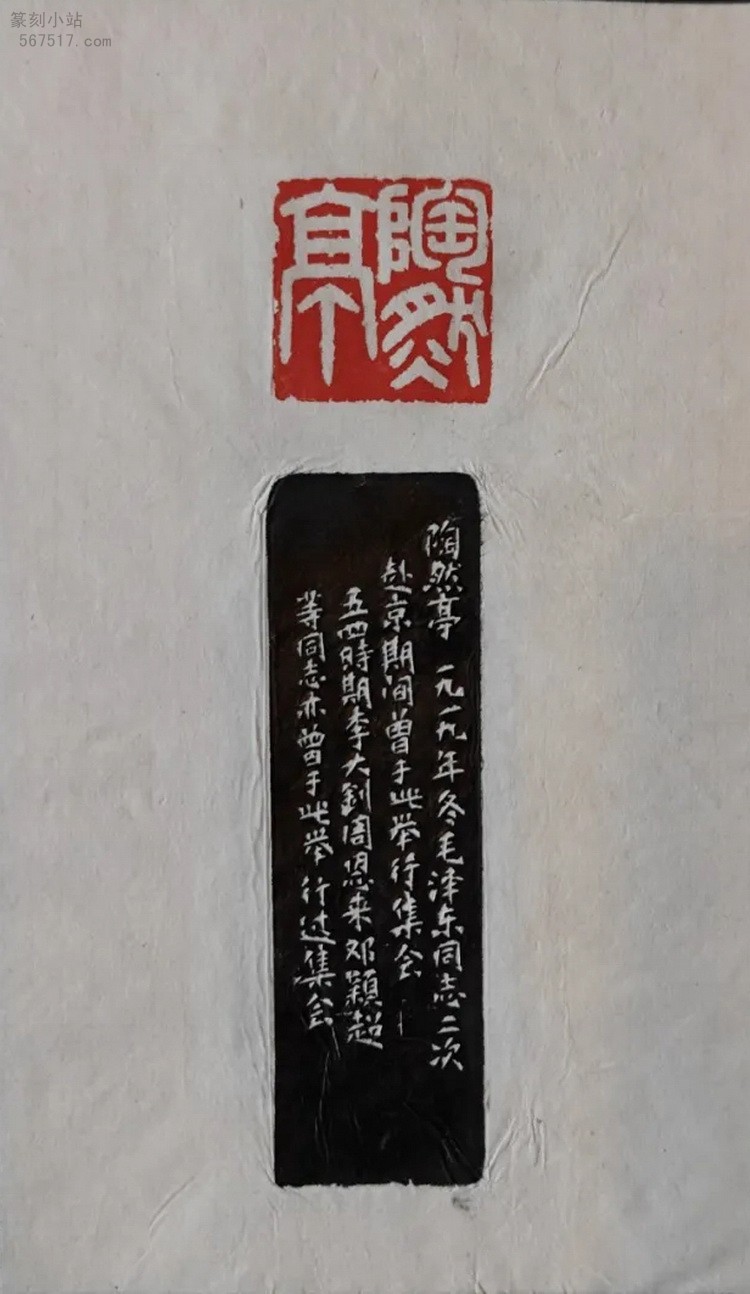 篆刻小站
567517.com
陶然亭
陶然亭 一九一九年冬毛泽东同志二次
赴京期间曾于此举行集会
五四時期李大釗周恩来邓穎超
等同志亦曾于此举行过集会